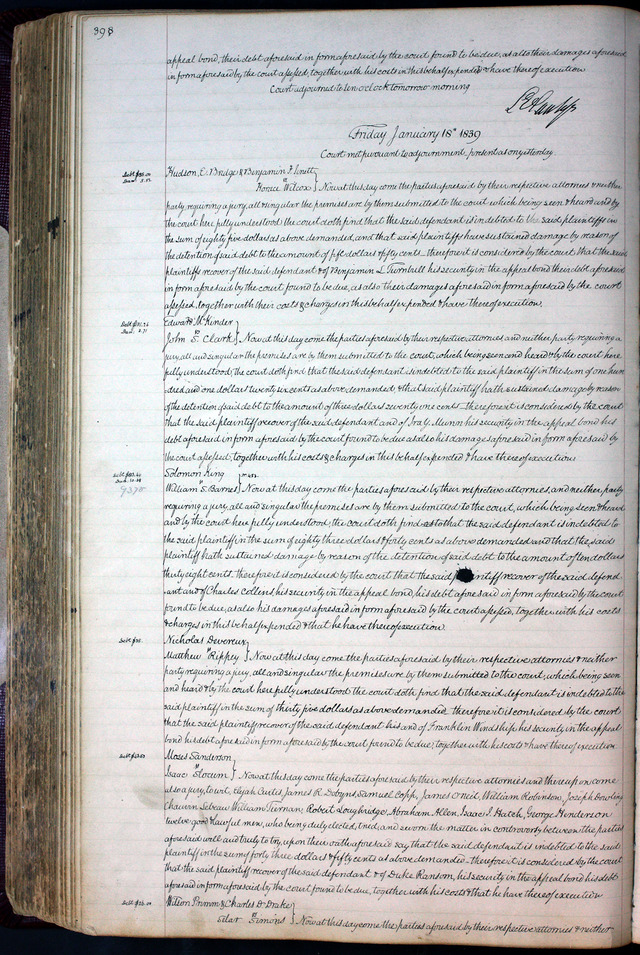 398
appeal bond, their debt aforesaid in form aforesaid by the court found to be due, as also their damages aforesaid
in form aforesaid by the court assessed, together with his costs in this behalf expended & have thereof execution
Court adjourned to ten oclock tomorrow morning
Friday January 18th 1839
Court met pursuant to adjournment, present as on yesterday
Hudson, E. Bridge & Benjamin F.
Horace Wilcox } Now at this day come the parties aforesaid by their respective attornies & neither
party requiring a jury, all & singular the premises are by them submitted to the court which being seen & heard and by
the court here fully understood the court doth find that the said defendant is indebted to the said plaintiffs in
the sum of eighty five dollars as above demanded, and that said plaintiffs have sustained damage by reason of
the detention of said debt to the amount of five dollars & fifty cents. therefore it is considered by the court that the said
plaintiffs recover of the said defendant & of Benjamin L Turnbull his security in the appeal bond their debt aforesaid
in form aforesaid by the court found to be due, as also their damages aforesaid in form aforesaid by the court
assessed, together with their costs & charges in this behalf expended & have thereof execution.
Edward McKinder
vs
John S. Clark } Now at this day come the parties aforesaid by their respective attornies and neither party requiring a
jury, all and singular the premises are by them submitted to the court, which being seen and heard & by the court here
fully understood, the court doth find that the said defendant is indebted to the said plaintiff in the sum of one hun
dred and one dollars twenty six cents as above demanded, & that said plaintiff hath sustained damage by reason
of the detention of said debt to the amount of three dollars seventy one cents. therefore it is considered by the court
that the said plaintiff recover of the said defendant and of Ira G. Munn his security in the appeal bond his
debt aforesaid in form aforesaid by the court found to be due as also his damages aforesaid in form aforesaid by
the court assessed, together with his costs & charges in this behalf expended & have thereof execution
Solomon King
9375
William S. Barnes } Now at this day come the parties aforesaid by their respective attornies, and neither party
requiring a jury, all and singular the premises are by them submitted to the court, which being seen & heard
and by the court here fully understood, the court doth find as to that the said defendant is indebted to
the said plaintiff in the sum of eighty three dollars & forty cents as above demanded and that the said
plaintiff hath sustained damage by reason of the detention of said debt to the amount of ten dollars
thirty eight cents. therefore it is considered by the court that the said plaintiff recover of the said defend
ant and of Charles Collens his security in the appeal bond, his debt aforesaid in form aforesaid by the court
found to be due, as also his damages aforesaid in form aforesaid by the court assessed, together with his costs
& charges in this behalf expended & that he have thereof execution.
Nicholas Devereux
vs
Matthew Rippey } Now at this day come the parties aforesaid by their respective attornies & neither
party requiring a jury, all and singular the premises are by them submitted to the court, which being seen
and heard & by the court here fully understood the court doth find that the said defendant is indebted to the
said plaintiff in the sum of thirty five dollars as above demanded. therefore it is considered by the court
that the said plaintiff recover of the said defendant his and of Franklin Windship his security in the appeal
bond his debt aforesaid in form aforesaid by the court found to be due, together with his costs & have thereof execution
Moses Sanderson
vs
Isaac Slocum } Now at this day come the parties aforesaid by their respective attornies and thereupon come
also a jury, towit, Elijah Curtis James R. Dobyns, Samuel Copp, James O'neil, William Robinson, Joseph Dowling
Chauvin Lebeau William Tiernan, Robert Loughridge, Abraham Allen, Isaac I. Hatch, George Henderson
twelve good & lawful men, who being duly elected, tried, and sworn the matter in controversy between the parties
aforesaid well and truly to try, upon their oath aforesaid say that the said defendant is indebted to the said
plaintiff in the sum of forty three dollars & fifty cents as above demanded. therefore it is considered by the court
that the said plaintiff recover of the said defendant & of Duke Ransom, his security in the appeal bond his debt
aforesaid in form aforesaid by the court found to be due, together with his costs & that he have thereof execution
Wilson Primm & Charles D. Drake
vs
Simons } Now at this day come the parties aforesaid by their respective attornies & neither